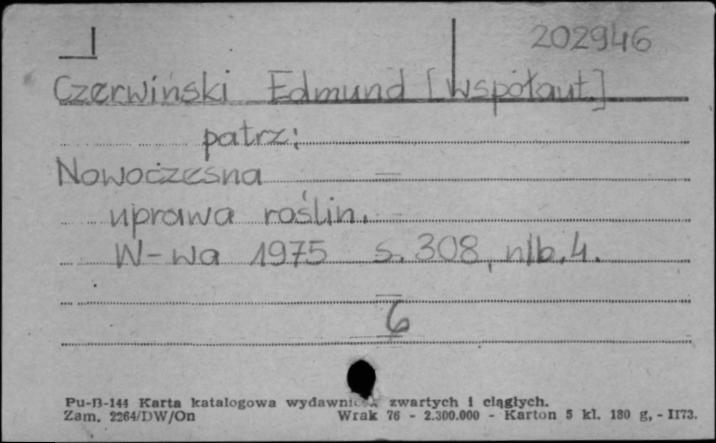 202946
Czerwiński Edmund [Współaut.]
patrz:
Nowoczesna
uprawa roślin.
W-wa 1975 s. 308, nlb. 4.
6
Pu-B-144 Karta katalogowa zwartych i ciągłych.
Zam. 2264/DW/On Wrak 76 - 2.300.000 - Karton 5 kl. 180 g, - II73.